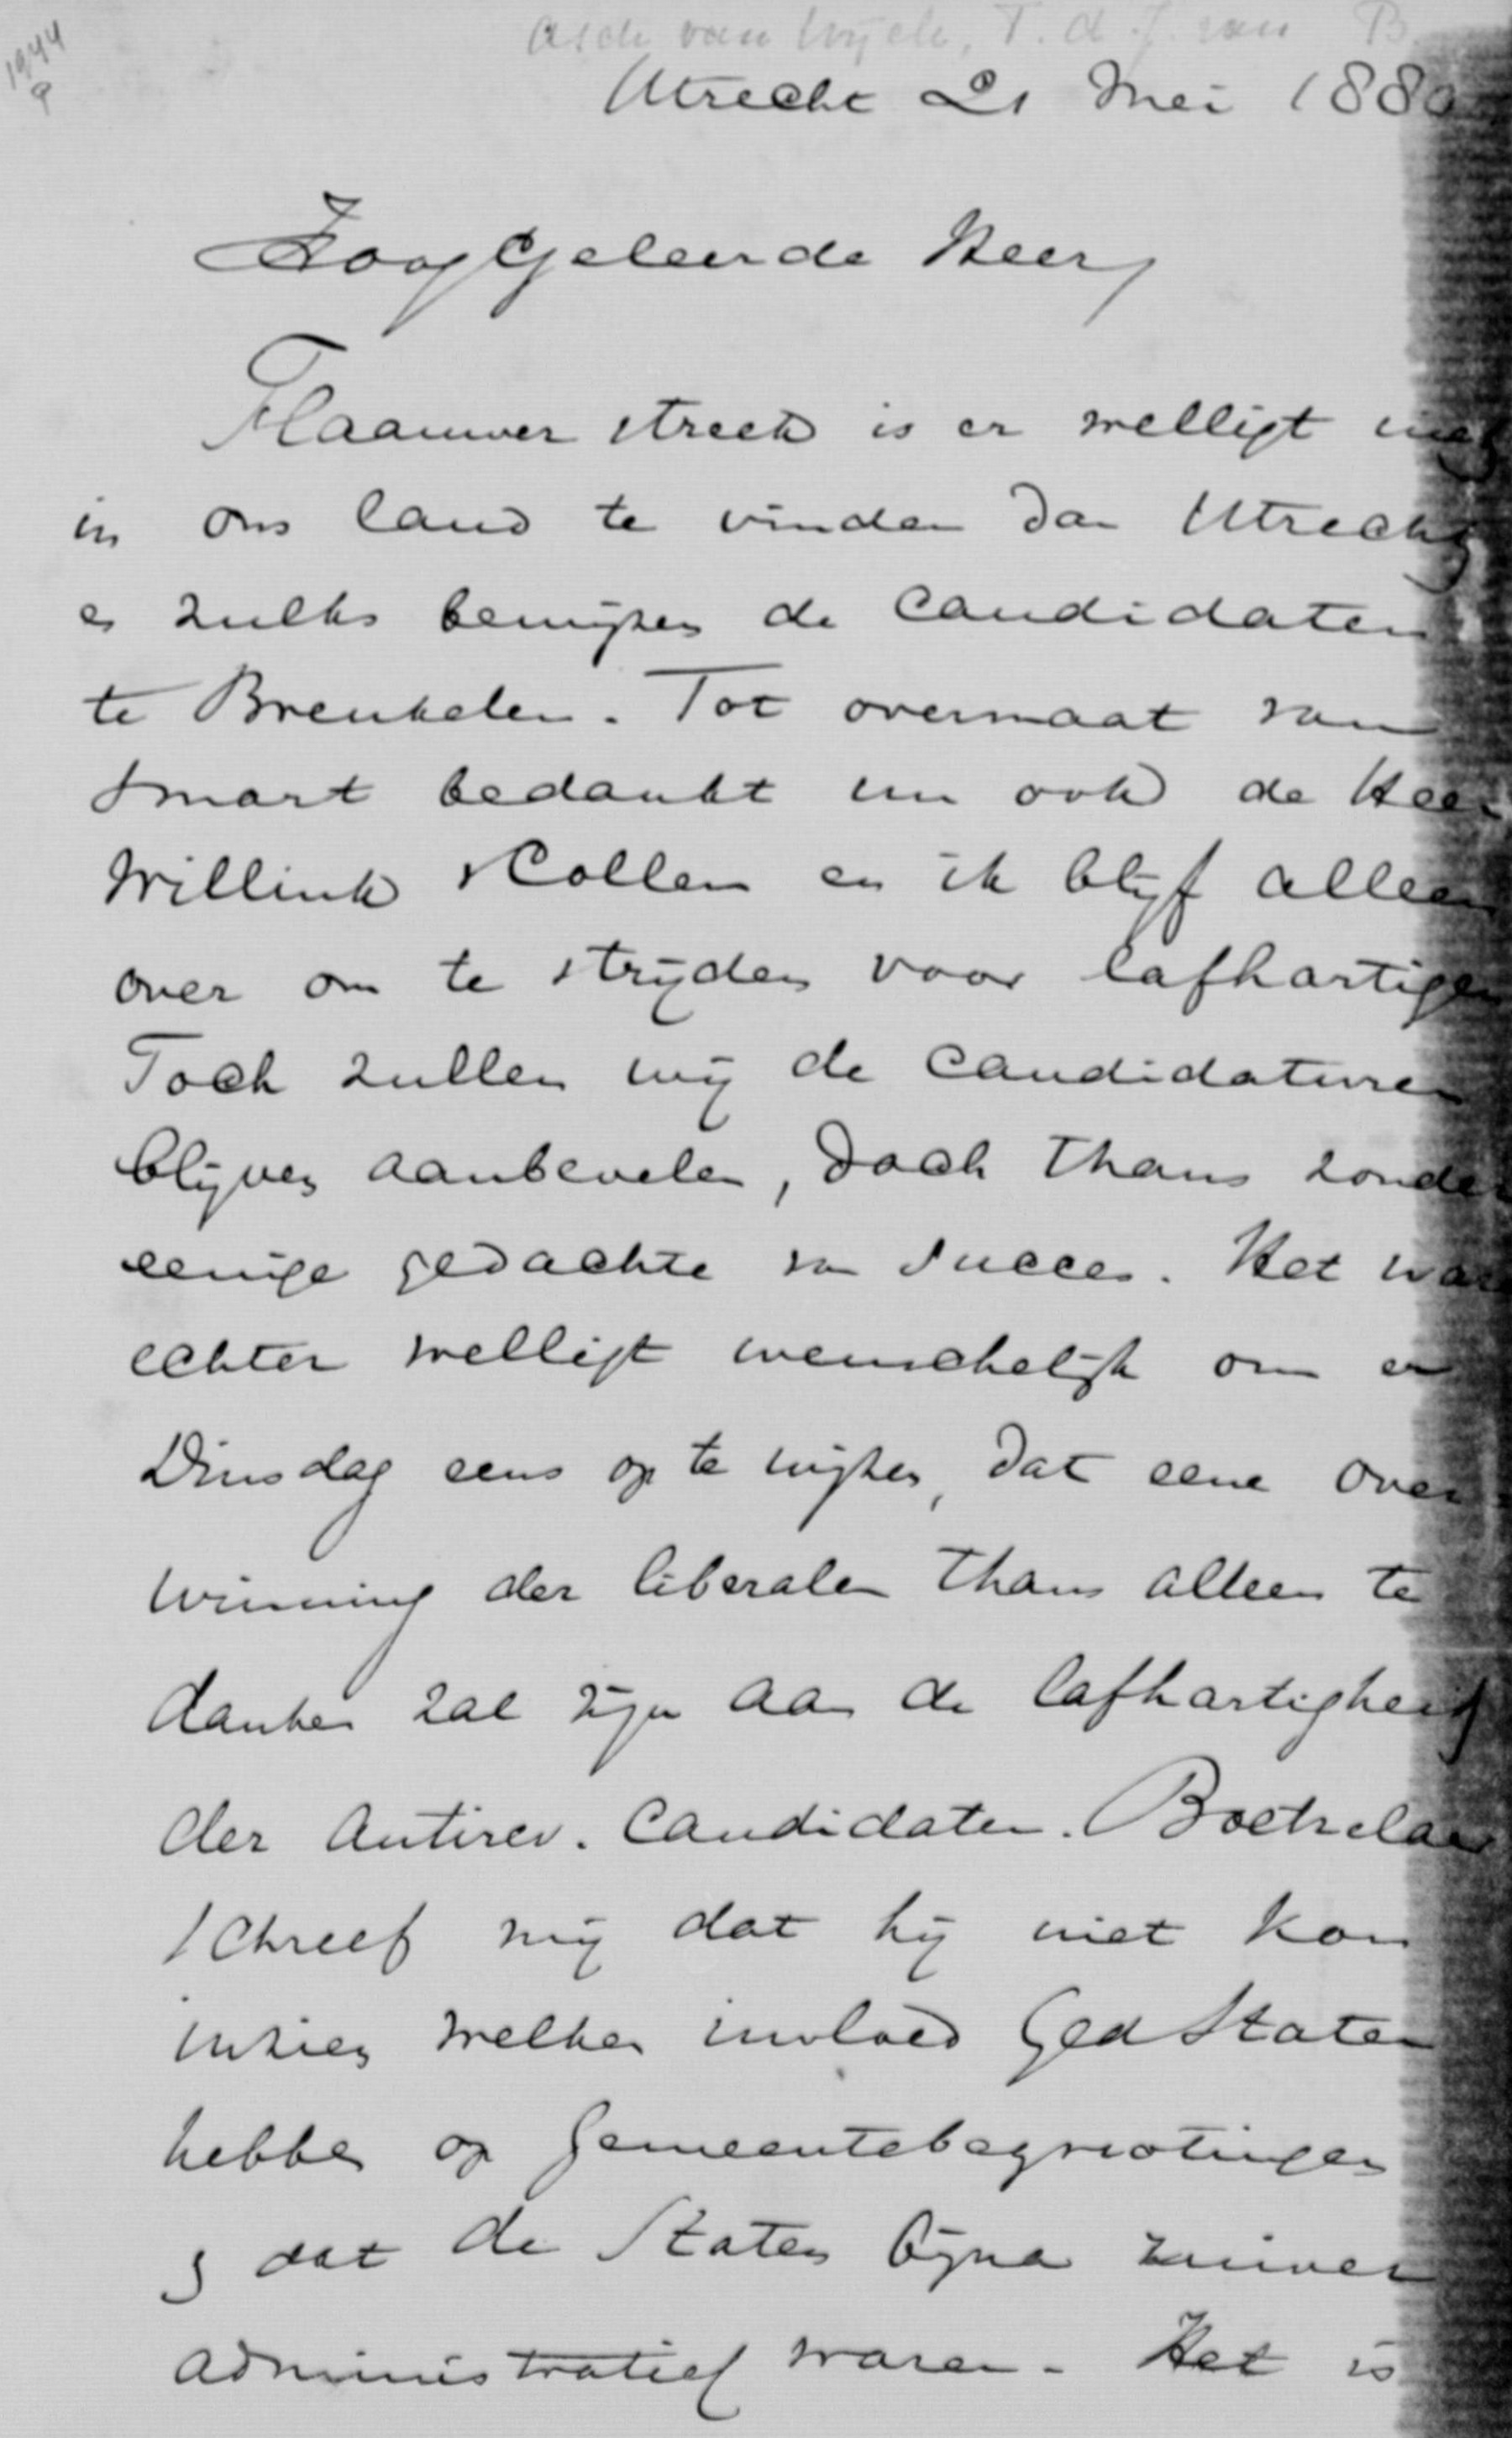 1944
9
Asch van Wijck, T. d. J. van B.
Utrecht 21 Mei 1880
HoogGeleerde Heer,
Flaauwer streek is er welligt niet
in ons land te vinden dan Utrecht
en zulks bewijzen de candidaten
te Breukelen. Tot overmaat van
smart bedankt nu ook de Heer
Willink v Collen en ik blijf alleen
over om te strijden voor lafhartigen
Toch zullen wij de candidaturen
blijven aanbevelen, doch thans zonder
eenige gedachte van succes. Het ware
echter welligt wenschelijk om er
Dinsdag eens op te wijzen, dat eene over
winning der liberalen thans alleen te
danken zal zijn aan de lafhartigheid
der Antirev. Candidaten. Boetzelaer
schreef mij dat hij niet kon
inzien welken invloed Ged Staten
hebben op gemeentebegrootingen
& dat de Staten bijna zuiver
administratief waren. Het is